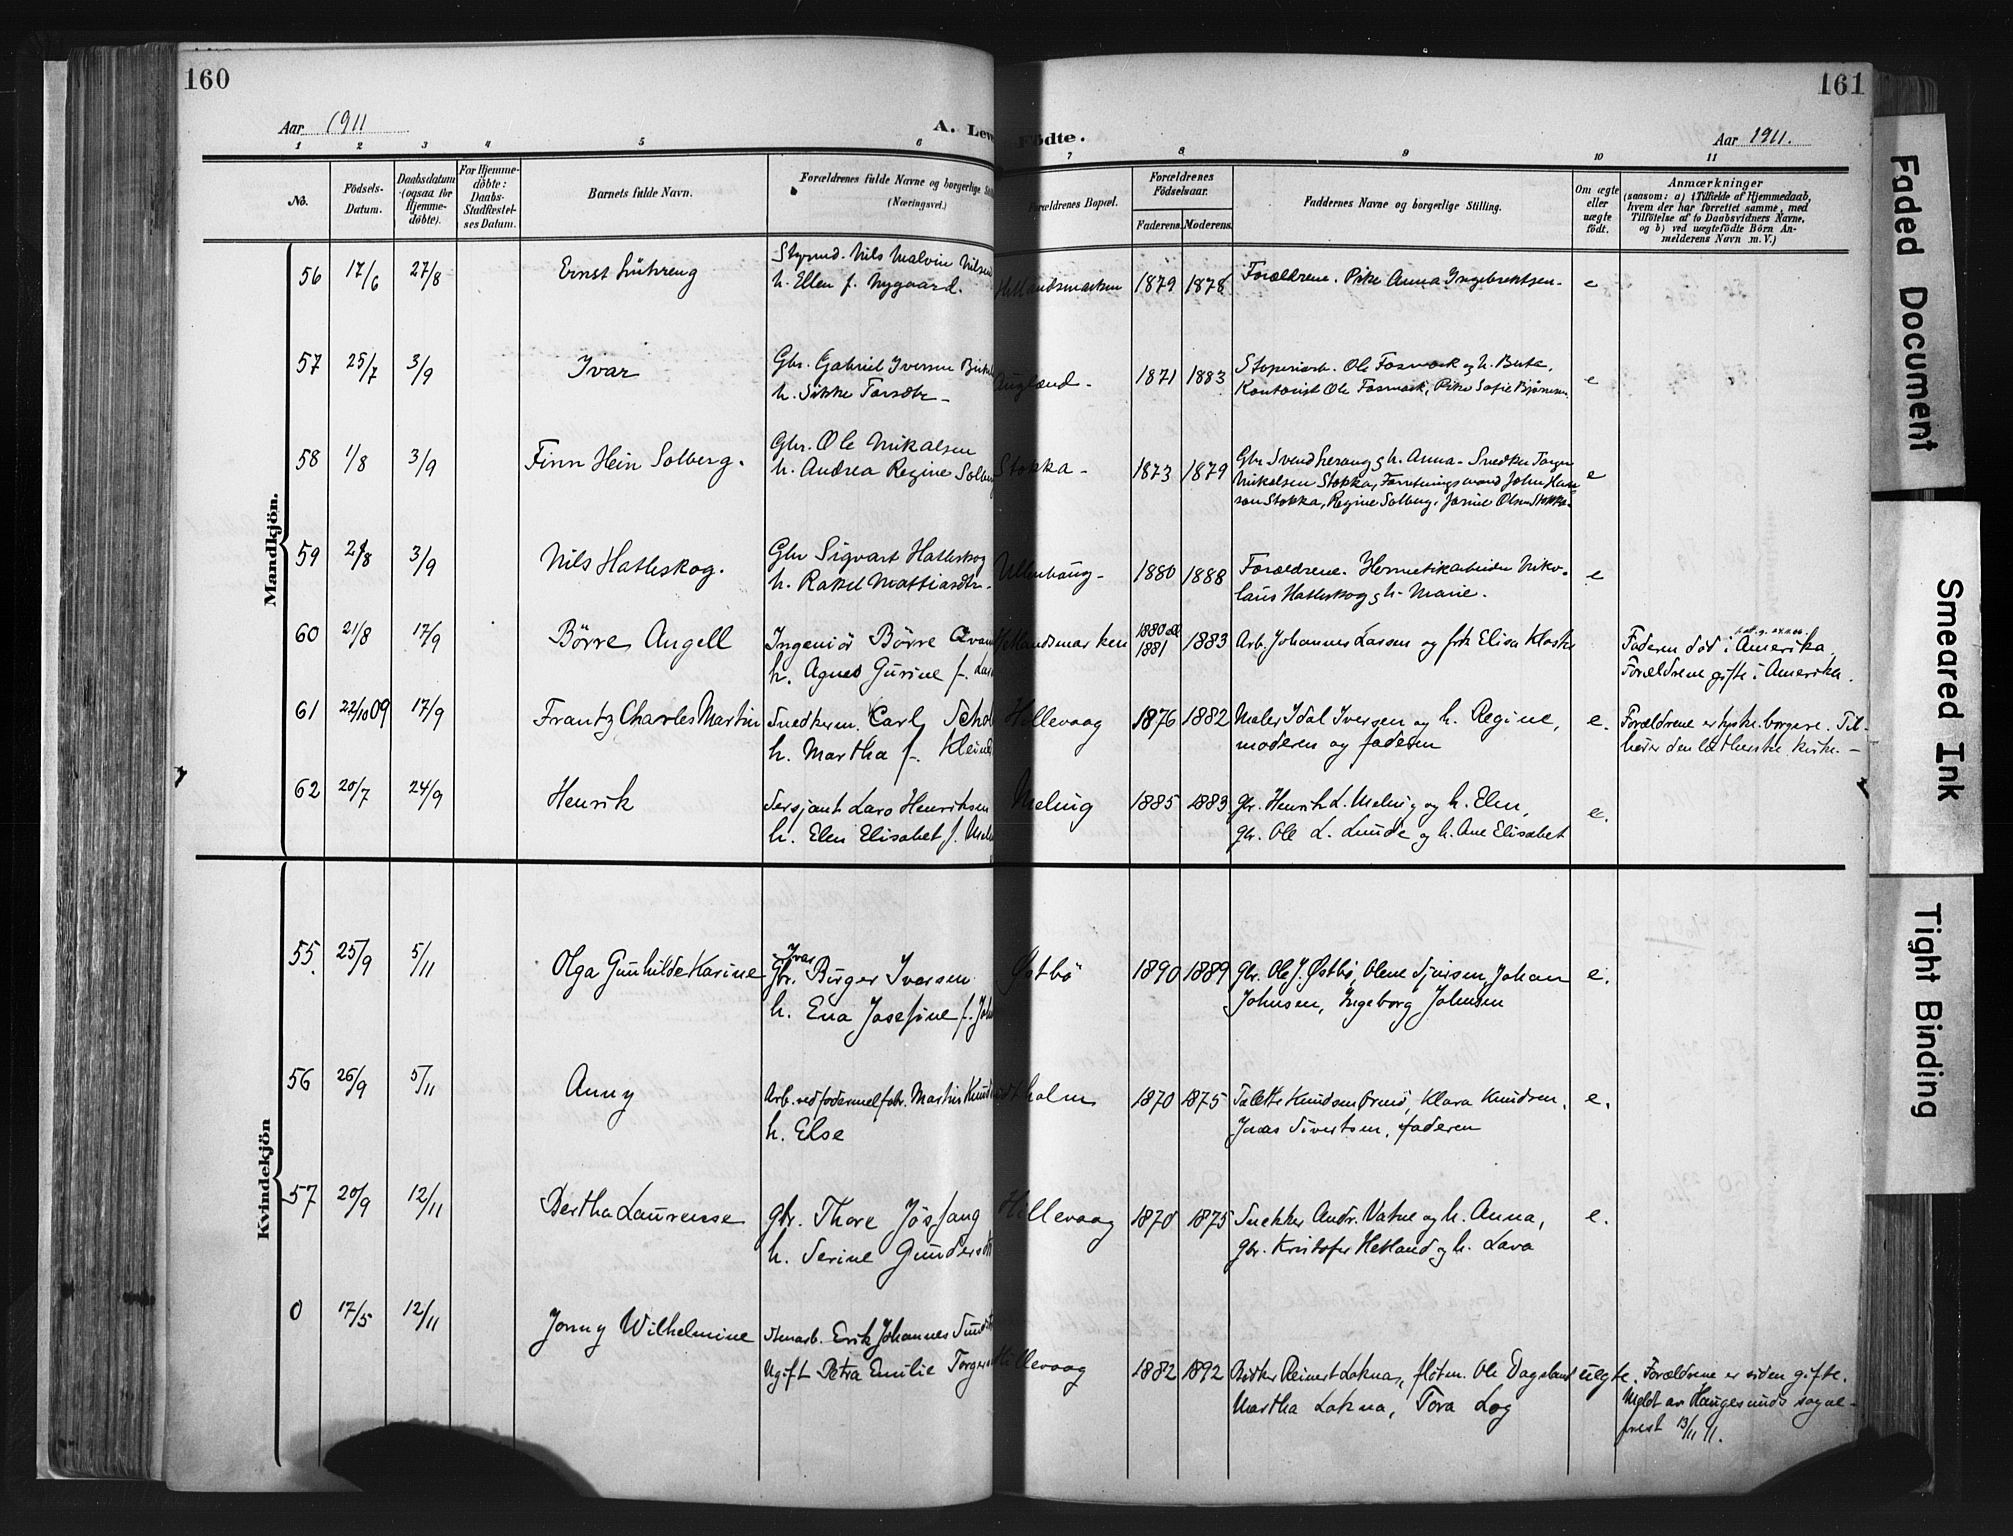 160
161
Aar 1911
A. Leve
Födte.
Aar 1911.
1 2 3 4 5 6 7 8 9 10 11
No.
Födsels-
Datum.
Daabsdatum
(ogsaa for
Hjemme-
döbte).
For Hjemme-
döbte:
Daabs-
Stadfæstel-
ses Datum.
Barnets fulde Navn.
Forældrenes fulde Navne og borgerlige Stil
(Næringsvei.)
Forældrenes Bopæl.
Forældrenes
Födselsaar.
Faderens. Moderens.
Faddernes Navne og borgerlige Stilling.
Om ægte
eller
uægte
født.
Anmærkninger
(saasom: a) i Tilfælde af Hjemmedaab,
hvem der har forrettet samme, med
Tilföielse af to Daabsvidners Navne,
og b) ved uægtefödte Börn An-
melderens Navn m. V.)
Mandkjön.
56 17/6 27/8 Ernst Lühreng
Styrmd. Nils Malvin Nilsen
h. Ellen f. Nygaard. Hetlandsmarken 1879 1878 Forældrene. Pike Anna Ingebrektsen. e
57 25/7 3/9 Ivar
Gbr. Gabriel Iversen
h. Sikke Tarsdtr. Auglænd. 1871 1883 Ole Fosmark og h. Berta,
Kontorist Ole Fosmark, Pike Sofie Bjørnsen. e
58 1/8 3/9 Finn Hein Solberg.
Gbr. Ole Mikalsen
h. Andrea Regine Solberg Stokka 1873 1879
Gbr Svend og h. Anna. Snedker Torger
Mikalsen Stokka, Forretningsmand John Han-
son Stokka, Regine Solberg. Olsen Stokka. e
59 2/8 3/9 Nils Hatleskog.
Gbr Sigvart Hatleskog
h. Rakel Mattiasdtr. Ullenhaug 1880 1888
Forældrene. Hermetikarbeider Niko-
laus Hatleskog og h. Marie. e
60 21/8 17/9 Börre Angell
Ingeniör Börre
h. Agnes Gurine f. Hetlandsmarken 1880 el 1881 1883 Arb. Johannes Larsen og frk Elisa
Faderen död i Amerika
Forældrene gifte i Amerika.
61 22/10 09 17/9 Frantz Charles Martin
Snedkerm. Carl
h. Martha f. Klein Hillevaag 1876 1882
Maler Idal Iversen og h. Regine,
moderen og faderen e.
Forældrene er tyske borgere. Til-
hører den lutherske kirke.
62 20/7 24/9 Henrik
Sersjant Lars Henriksen
h. Elen Elisabet f. Meling 1885 1883
gbr. Henrik L. Meling og h. Elen,
gbr. Ole L. Lunde og h. Ane Elisabet e.
Kvindekjön
55. 25/9 5/11 Olga Gunhilde Karine
Ivar
Gbr. Birger Iversen
h. Ena Josefine f. Østbö 1890 1889
gbr. Ole J. Østbö, Olene Sjursen, Johan
Johnsen, Ingeborg Johnsen e.
56 26/9 5/11 Anny
Arb. ved fodermelfabr. Martin Knud
h. Else holm 1870 1875
Knudsen, Klara Knudsen,
Jonas Sivertsen, faderen e.
57 20/9 12/11 Bertha Laurense
gbr. Thore Jösfang
h. Serine Gundersdtr Hillevaag 1870 1875
Snekker Andr. Vatne og h. Anna,
gbr. Kristofer Hetland og h. Lava e.
0 17/5 12/11 Jonny Wilhelmine
Stenarb. Erik Johannes
Ugift Petra Emilie Torgersen Hillevaag 1882 1892
Reinert Loknas, fløtm. Ole Dagsland
Martha Lokna, Tora Log uegte.
Forældrene er siden gifte.
Meldt av Haugesunds sogne-
prest 13/11 11.
Faded Document
Smeared Ink
Tight Binding